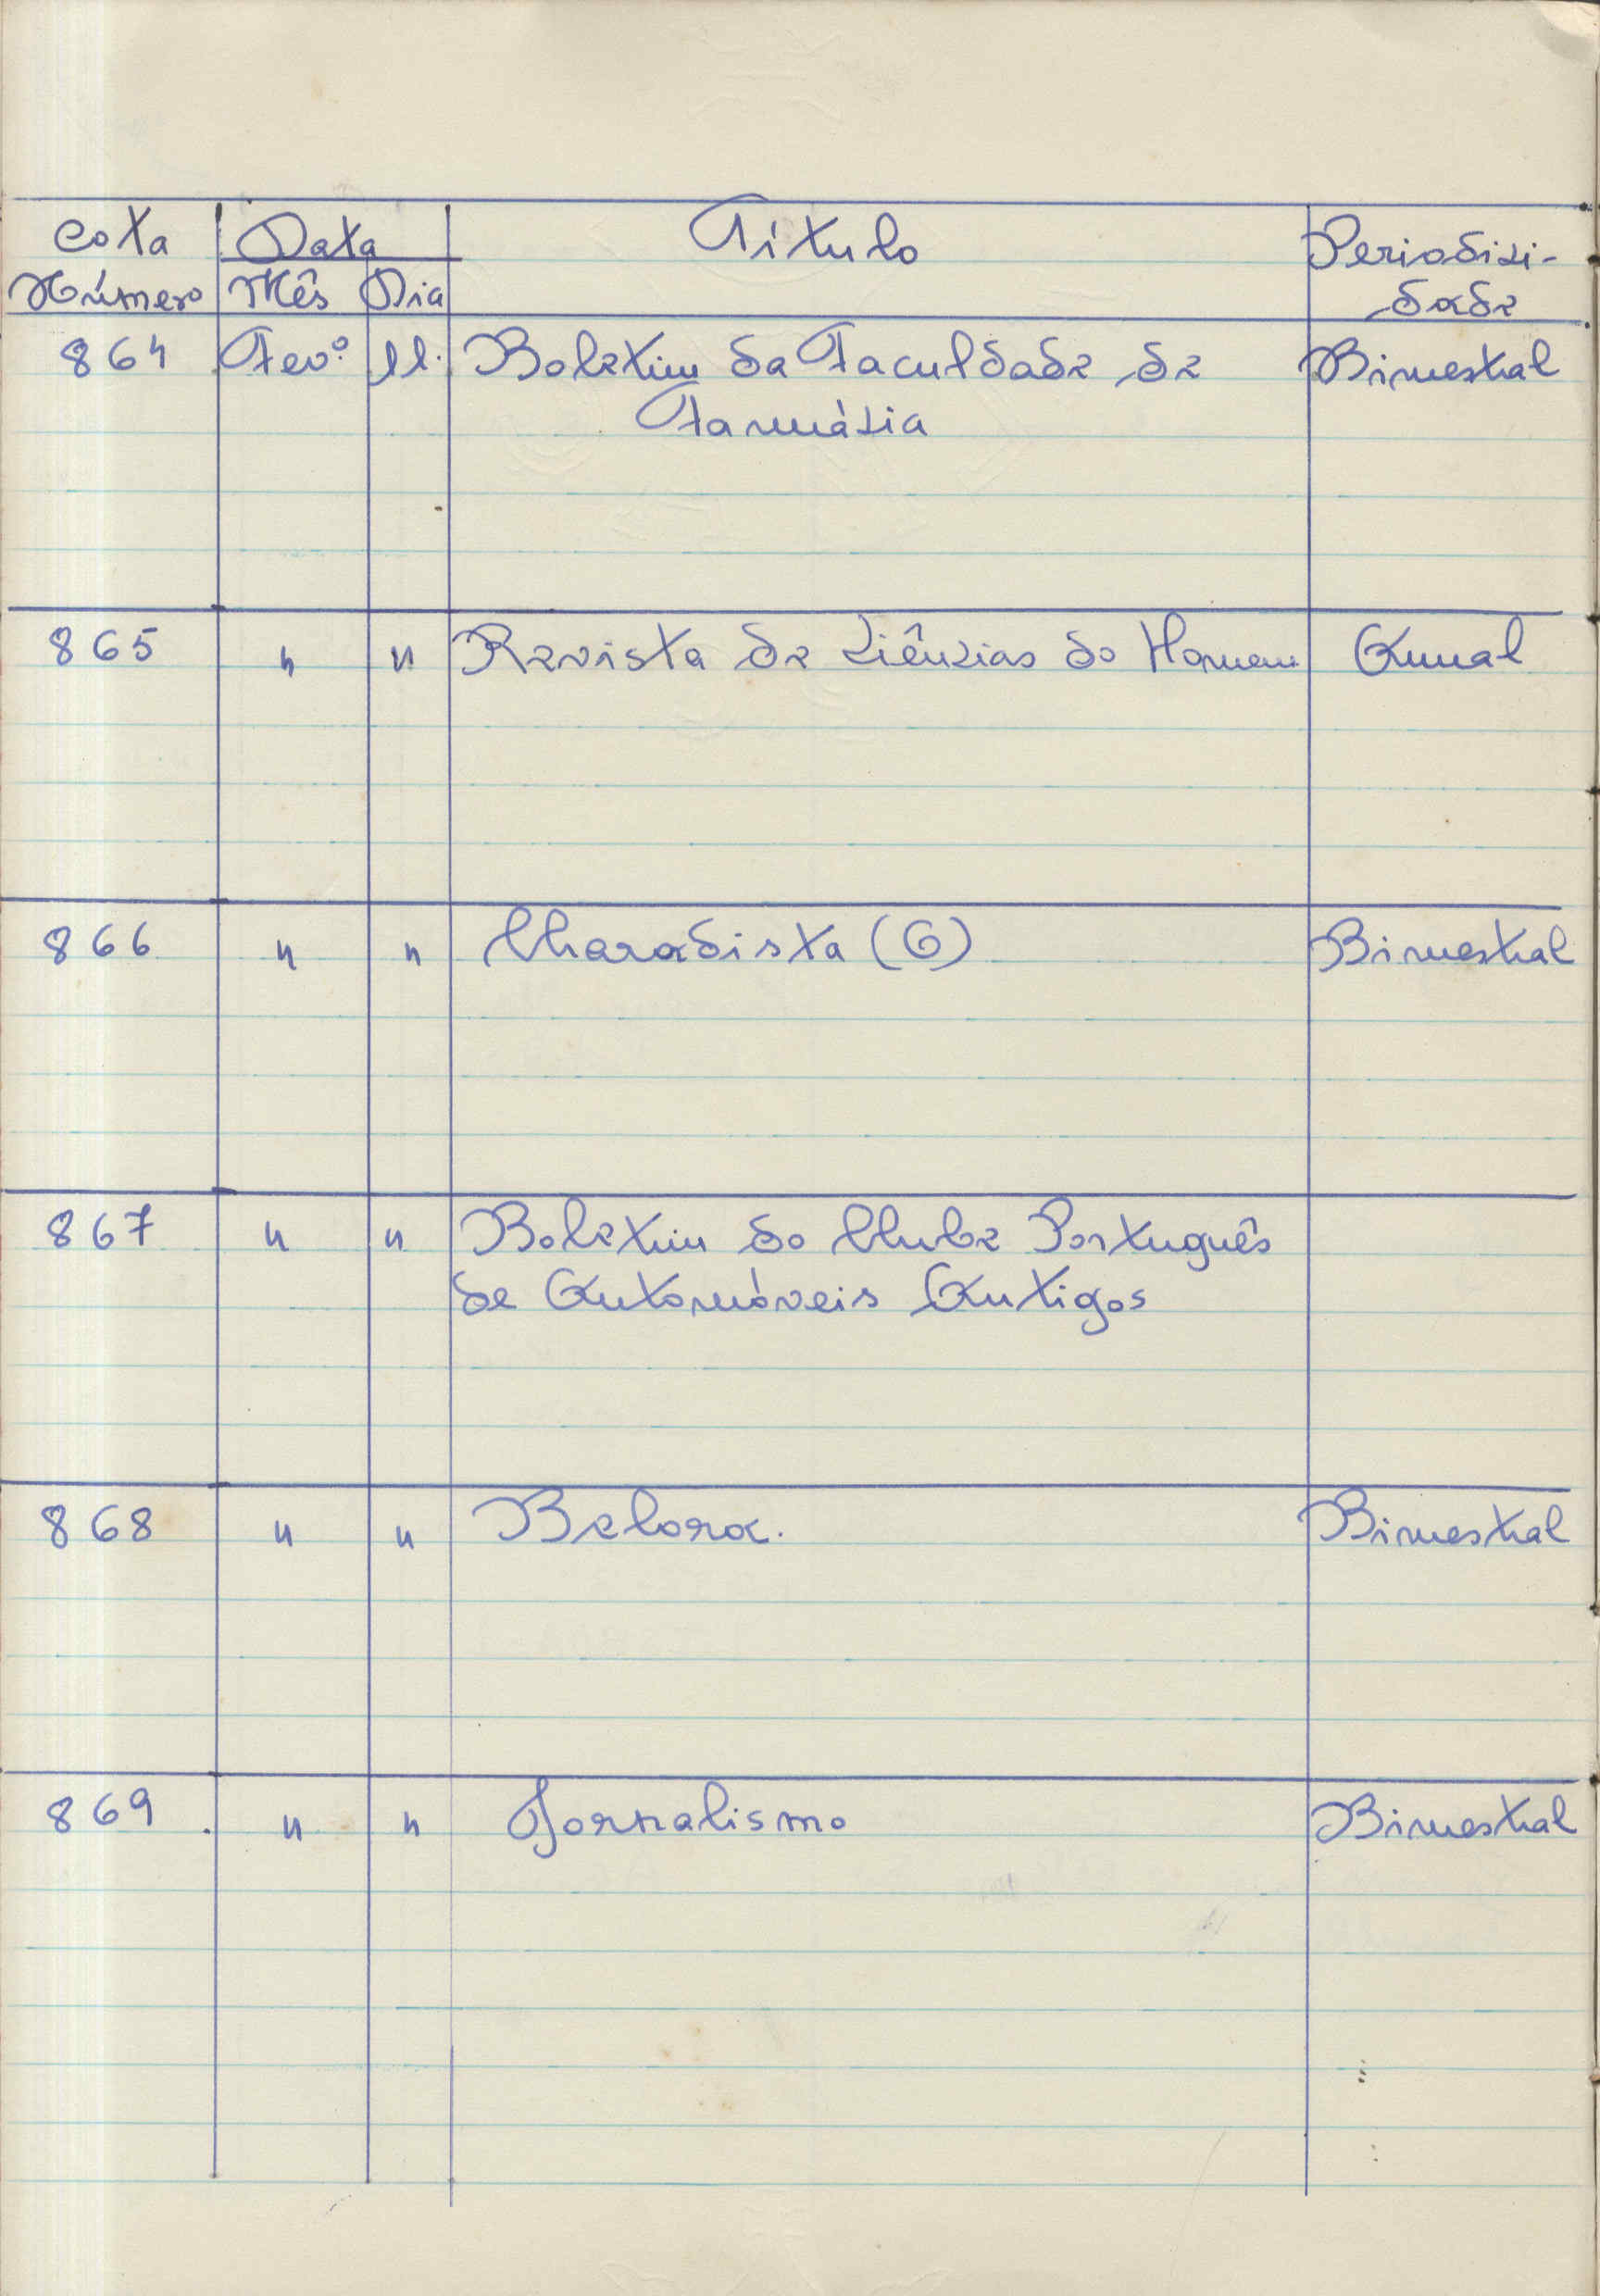 Cota Data Título Periodici-
Número Mês Dia dade
864 Fev.º 11. Boletim da Faculdade de Bimestral
Farmácia
865 " " Revista de Ciências do Homem Anual
866 " " Charadista (O) Bimestral
867 " " Boletim do Clube Português
de Automóveis Antigos
868 " " Belora. Bimestral
869 " " Jornalismo Bimestral